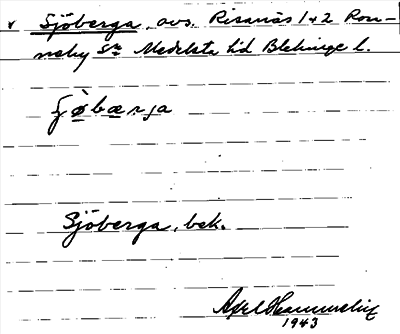 v Sjöberga, avs. Risanäs 1+2 Ron-
neby Sn Medelsta hd Blekinge l.
ʃø̀bærja
Sjöberga, bek.
Axel
1943